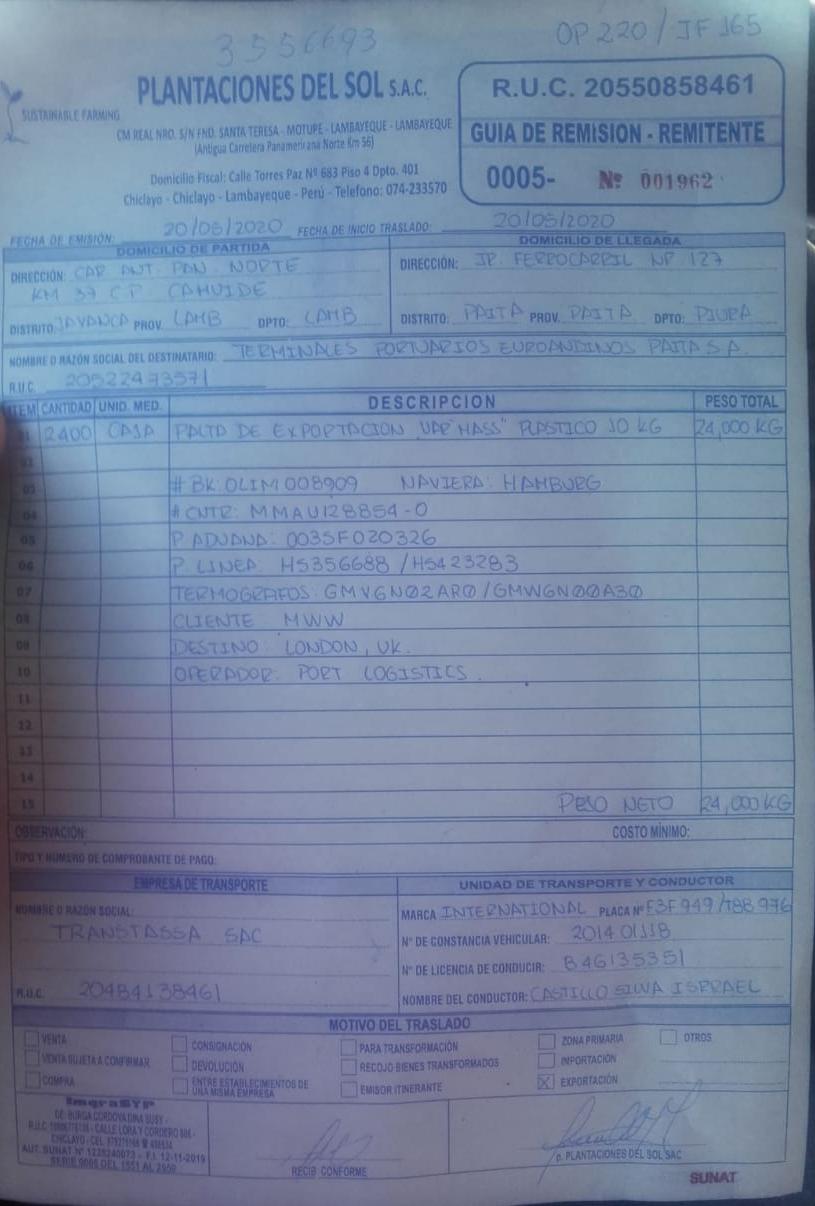 3556693
OP 220 / JF 165
SUSTAINABLE FARMING
PLANTACIONES DEL SOL S.A.C.
CM REAL NRO. S/N FND. SANTA TERESA - MOTUPE - LAMBAYEQUE - LAMBAYEQUE
(Antigua Carretera Panamericana Norte Km 56)
Domicilio Fiscal: Calle Torres Paz Nº 683 Piso 4 Dpto. 401
Chiclayo - Chiclayo - Lambayeque - Perú - Telefono: 074-233570
R.U.C. 20550858461
GUIA DE REMISION - REMITENTE
0005- Nº 001962
FECHA DE EMISIÓN: 20/05/2020 FECHA DE INICIO TRASLADO: 20/05/2020
DOMICILIO DE PARTIDA
DIRECCIÓN: CAR ANT. PAN. NORTE
KM 37 C.P. CAHUIDE
DISTRITO: JAYANCA PROV. LAMB DPTO: LAMB
DOMICILIO DE LLEGADA
DIRECCIÓN: JR. FERROCARRIL NR 127
DISTRITO: PAITA PROV. PAITA DPTO: PIURA
NOMBRE O RAZON SOCIAL DEL DESTINATARIO: TERMINALES PORTUARIOS EUROANDINOS PAITA S.A.
R.U.C. 20522473571
ITEM CANTIDAD UNID. MED. DESCRIPCION PESO TOTAL
01 2400 CAJA PALTA DE EXPORTACION VAR "HASS" PLASTICO 10 KG 24,000 KG
02
03 # BK: OLIM008909 NAVIERA: HAMBURG
04 # CNTR: MMAU128854-0
05 P. ADUANA: 0035F020326
06 P. LINEA: HS356688 / HS423283
07 TERMOGRAFOS: GMV6N02AR0 / GMWGN00A30
08 CLIENTE MWW
09 DESTINO: LONDON, UK.
10 OPERADOR: PORT LOGISTICS.
11
12
13
14
15 PESO NETO 24,000 KG
OBSERVACIÓN: COSTO MÍNIMO:
TIPO Y NUMERO DE COMPROBANTE DE PAGO:
EMPRESA DE TRANSPORTE
NOMBRE O RAZÓN SOCIAL:
TRANSTASSA SAC
R.U.C. 20484138461
UNIDAD DE TRANSPORTE Y CONDUCTOR
MARCA INTERNATIONAL PLACA Nº F3F 949 / T88 976
N° DE CONSTANCIA VEHICULAR: 201401118
N° DE LICENCIA DE CONDUCIR: B46135351
NOMBRE DEL CONDUCTOR: CASTILLO SILVA ISRRAEL
MOTIVO DEL TRASLADO
VENTA
VENTA SUJETA A CONFIRMAR
COMPRA
CONSIGNACIÓN
DEVOLUCIÓN
ENTRE ESTABLECIMIENTOS DE
UNA MISMA EMPRESA
PARA TRANSFORMACIÓN
RECOJO BIENES TRANSFORMADOS
EMISOR ITINERANTE
ZONA PRIMARIA
IMPORTACIÓN
X EXPORTACIÓN
OTROS
ImgraSYP
DE: BURGA CORDOVA DINA SUSY -
CALLE LORA Y CORDERO
CHICLAYO - CEL.
AUT. SUNAT N° 1228240073 - F.I. 12-11-2019
SERIE 0005 DEL 1551 AL 2550
RECIBI CONFORME
p. PLANTACIONES DEL SOL SAC
SUNAT